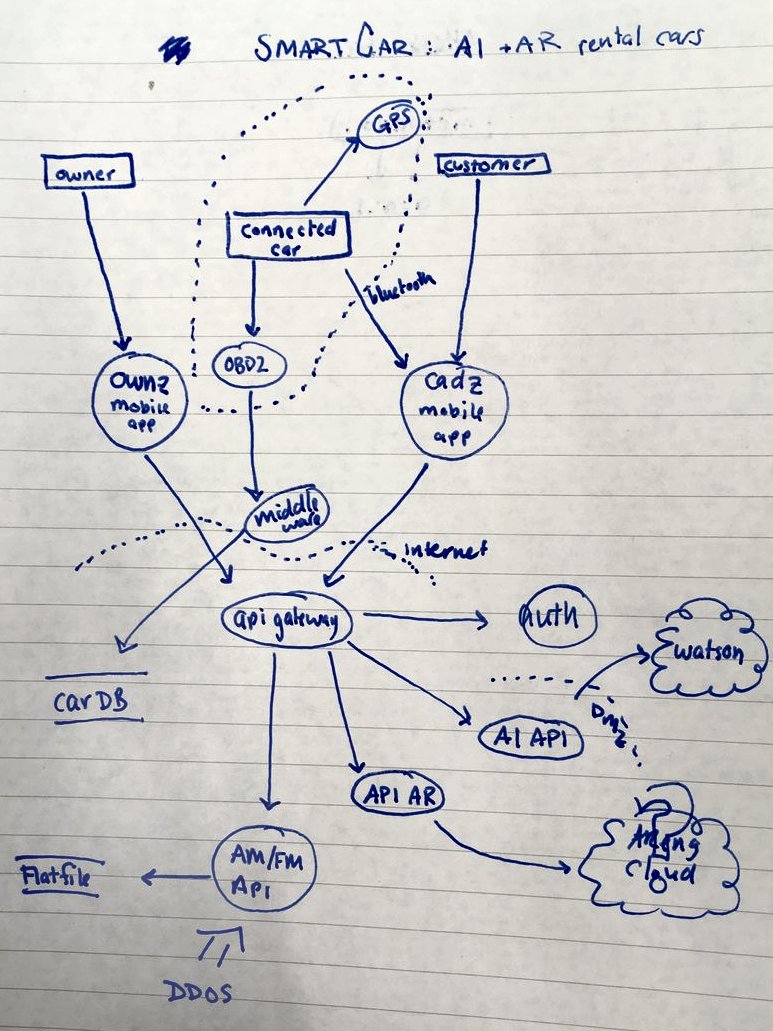 SMART CAR: AI + AR rental cars
GPS
owner
customer
connected
car
bluetooth
OBD2
Ownz
mobile
app
cadz
mobile
app
middle
ware
internet
api gateway
auth
watson
car DB
DMZ
AI API
API AR
AM/FM
Api
Flatfile
Cloud
DDOS